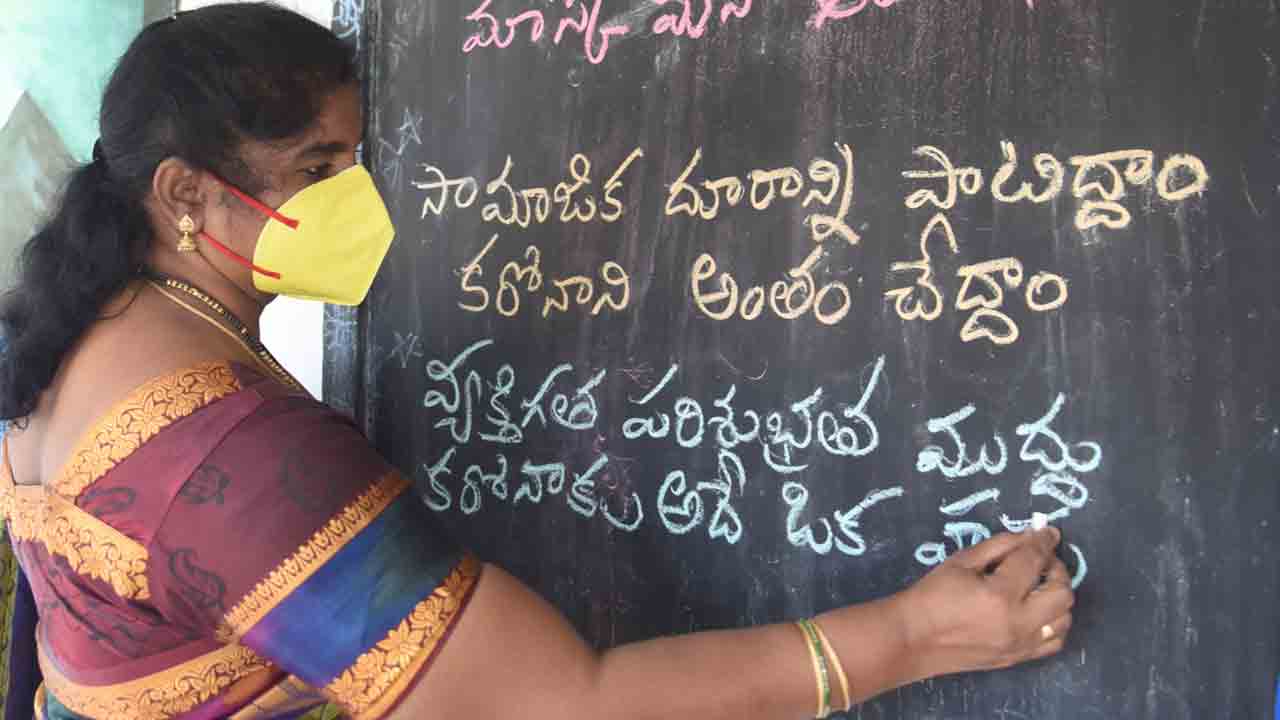 మాస్క్ మన
సామాజిక దూరాన్ని పాటిద్దాం
కరోనాని అంతం చేద్దాం
వ్యక్తిగత పరిశుభ్రత ముద్దు
కరోనాకు అదే ఒక